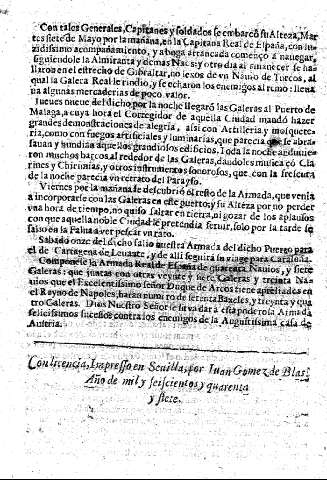 Con tales Generales, Capitanes y soldados se embarcó su Alteza, Mar
tes siete de Mayo por la mañana, en la Capitana Real de España, con lu-
zidissimo acompañamiento, y a boga arrancada començò a nauegar,
siguiendole la Almiranta y demas Naos: y otro dia al amanecer se ha-
llaron en el estrecho de Gibraltar, no lexos de vn Nauio de Turcos, al
qual la Galera Real le rindio, y se echaron los enemigos al remo: llena
ua algunas mercaderias de poco valor.
Iueues nueue del dicho por la noche llegarõ las Galeras al Puerto de
Malaga, a cuya hora el Corregidor de aquella Ciudad mandó hazer
grandes demonstraciones de alegria, assi con Artilleria y mosquete-
ria, como con fuegos artificiales y luminarias, que parecia que se abra
sauan y hundian aquellos grandiosos edificios. Toda la noche anduuie-
ron muchos barcos al rededor de las Galeras, dandoles musica cõ Cla-
rines y Chirimias, y otros instrumentos sonorosos, que con la frescura
de la noche parecia vn retrato del Parayso.
Viernes por la mañana se descubriò el resto de la Armada, que venia
a incorporarse con las Galeras en este puerto; y su Alteza por no perder
vna hora de tiempo, no quiso saltar en tierra, ni gozar de los aplausos
con que aquella noble Ciudad le pretendia seruir, solo por la tarde se
salio en la Falua a ver pescar vn rato.
Sabado onze del dicho salio nuestra Armada del dicho Puerto para
el de Cartagena de Leuante, y de alli seguirá su viage para Cataluña.
Componese la Armada Real de España de quarenta Nauios, y siete
Galeras: que juntas con otras veynte y siete Galeras y treinta Na-
uios que el Excelentissimo señor Duque de Arcos tiene aprestados en
el Reyno de Napoles, haran numero de setenta Baxeles, y treynta y qua
tro Galeras. Dios Nuestro Señor le lleve dar a esta poderosa Armada
felicissimos sucessos contra los enemigos de la Augustissima casa de
Austria.
Con licencia, Impresso en Seuilla, por Iuan Gomez de Blas.
Año de mil y seiscientos y quarenta
y siete.